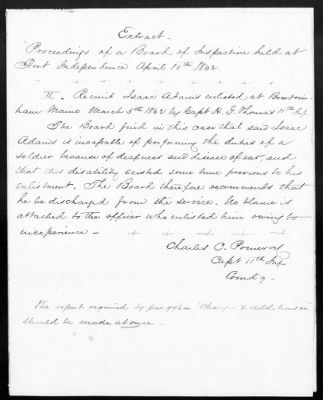 Extract.
Proceedings of a Board of Inspection held at
Fort Independence April 10th 1862.
+ + + + + + +
II. Recruit Isaac Adams enlisted, at Bowdoin-
ham Maine March 5th 1862 by Capt H. G. Thomas 11th Inf
The Board find in this case that said Isaac
Adams is incapable of performing the duties of a
soldier because of deafness and disease of ear, and
that this disability existed some time previous to his
enlistment. The Board therefore recommends that
he be discharged from the service. No blame is
attached to the officer who enlisted him owing to
inexperience — + + + +
Charles C. Pomeroy
Capt 11th Inf
Comdg.
The report required by par "Changes & Additions"
should be made at once.